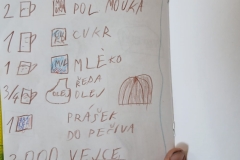 2 POL MOUKA
1 CUKR
1 MLÉKO
3/4 OLEJ
1 PRÁŠEK
DO PEČIVA
VEJCE